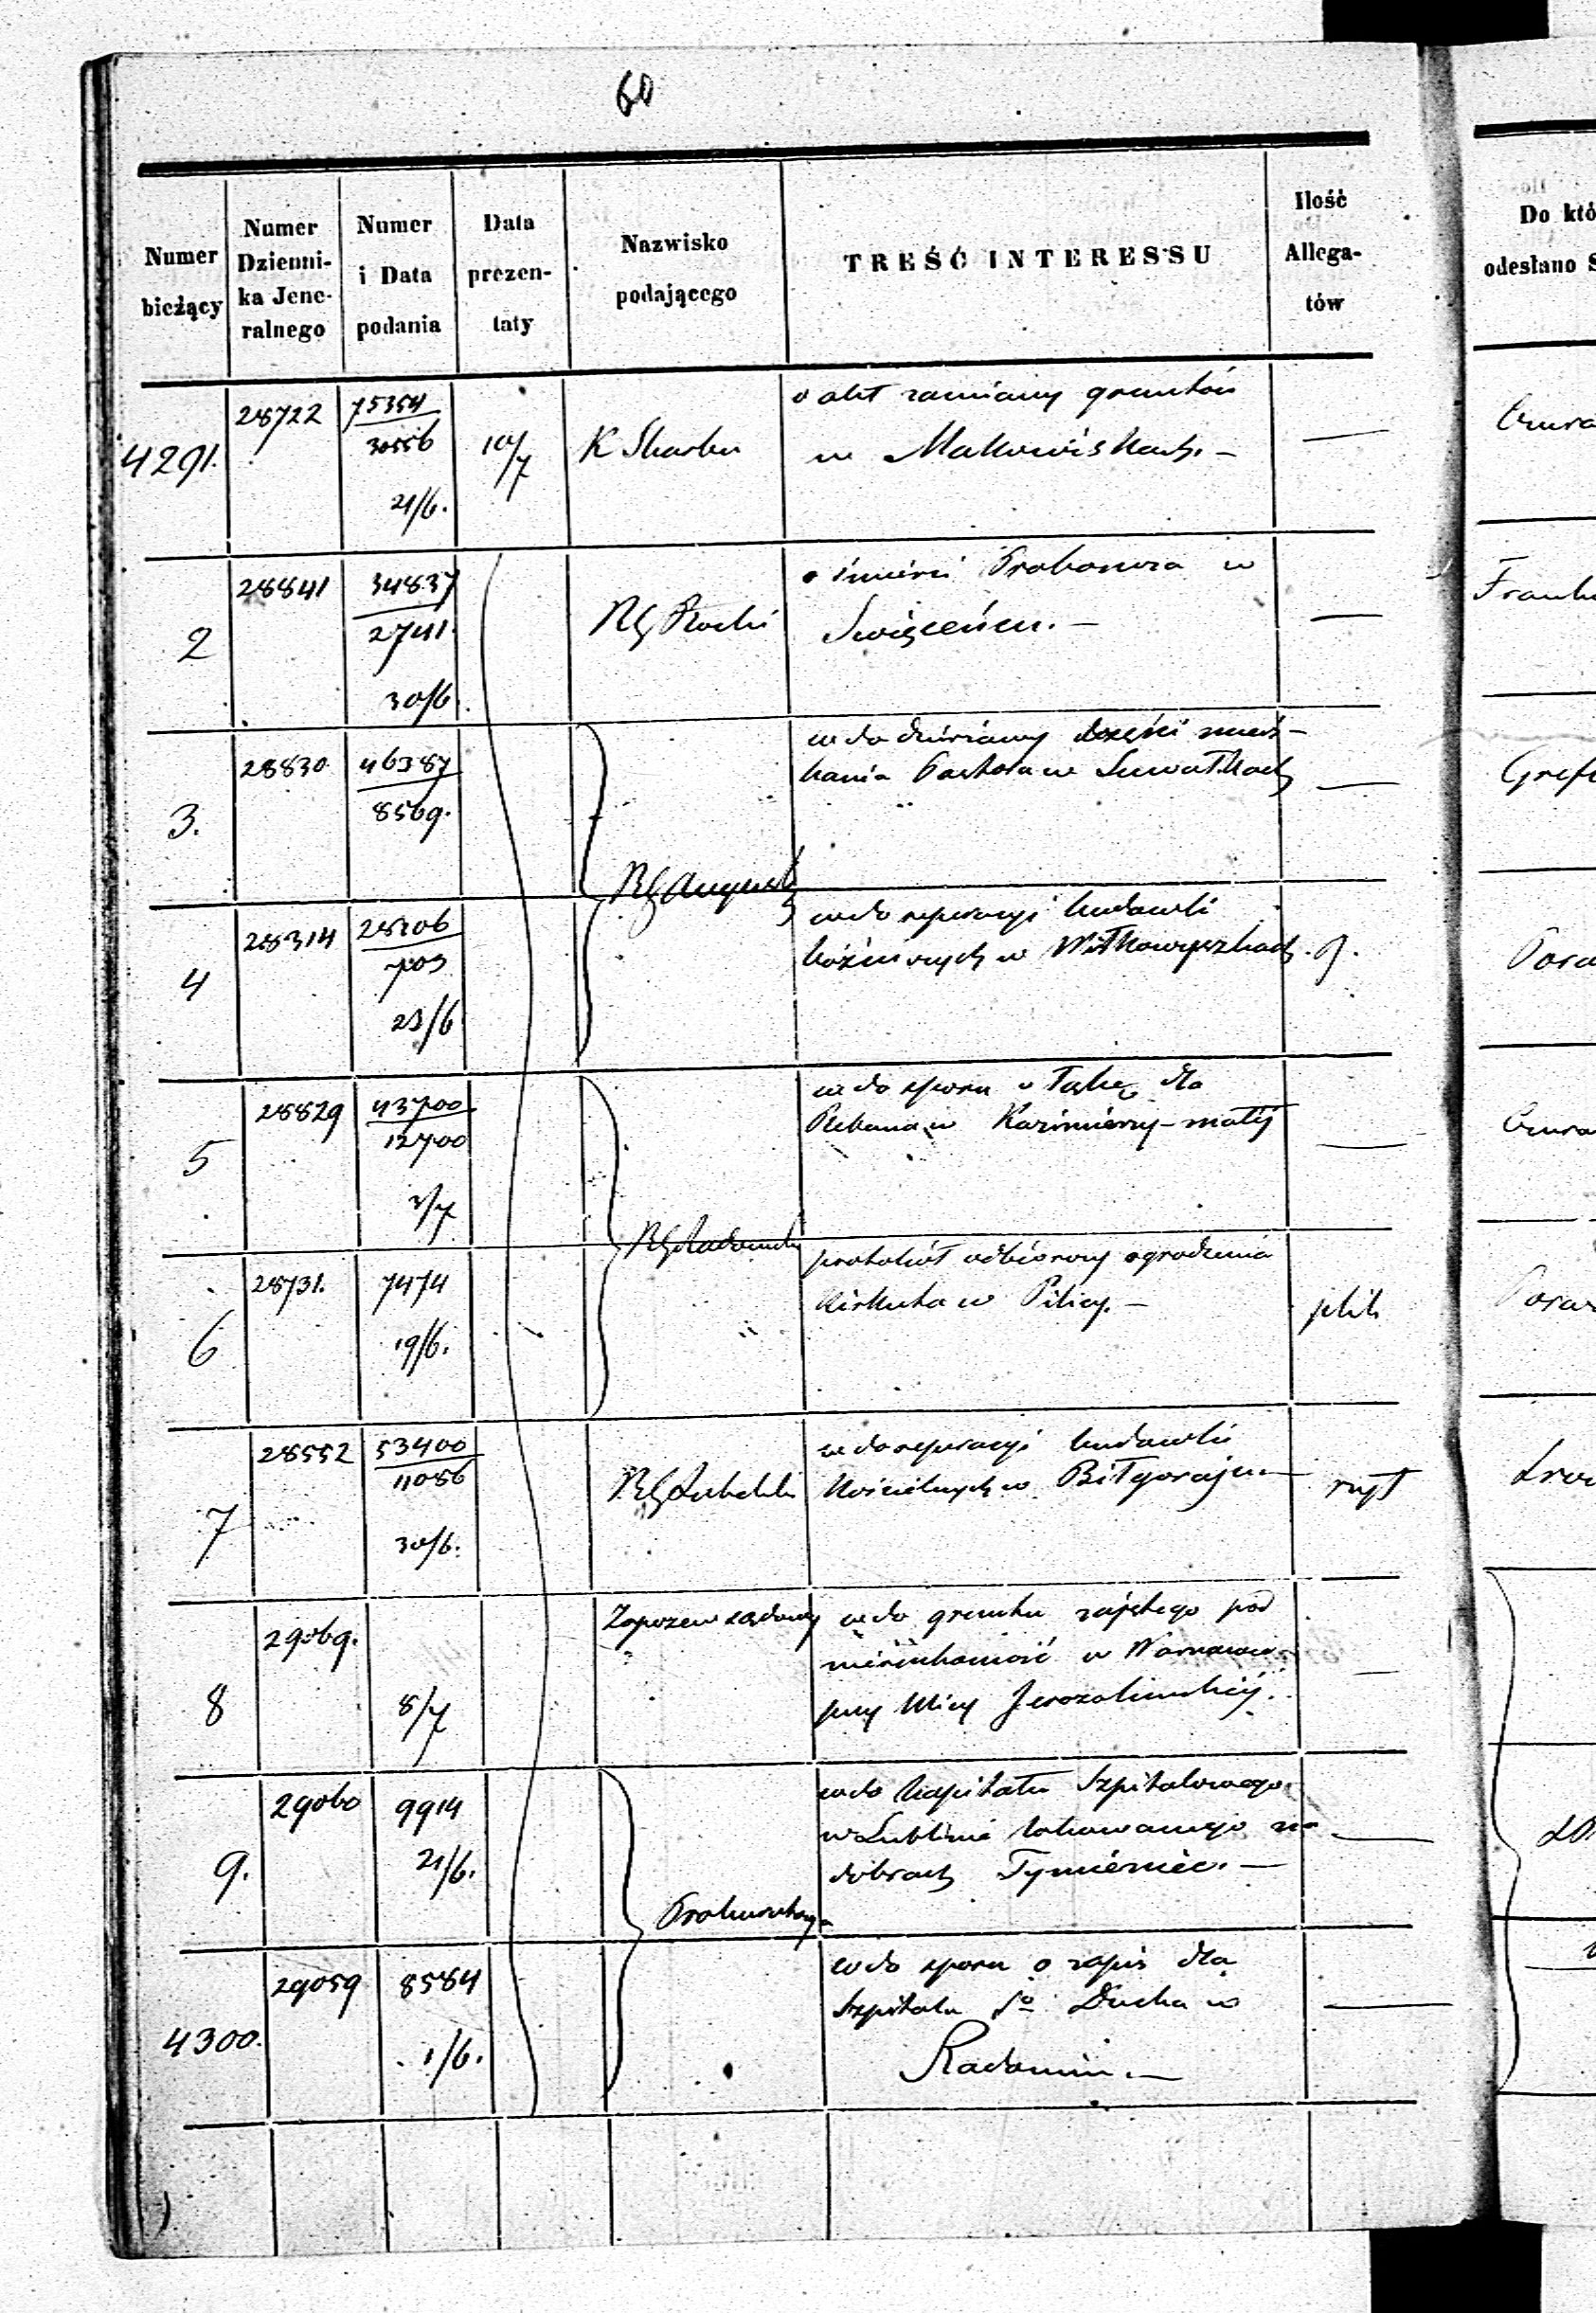 60
Numer bieżący
Numer Dzienni-ka Jene-ralnego
Numer i Data podania
Data prezen-taty
Nazwisko podającego
TREŚĆ INTERESSU
Ilość Allega-tów
Do któ
odesłano S
4291.
28722
75354
30556
21/6.
10/7
K Skarbu
o akt zamiany gruntów
w Makowiskach. –
—
2
28841
34837
2741.
30/6.
RG Płocki
o śmierci Proboszcza w
Święcieńcu. –
—
3.
28830
46387
8569.
RG August
wdo dzierżawy części miesz-
kania Pastora w Suwałkach
—
4
28314
28206
703
23/6
wdo reperacyi budowli
bóźniczych w Wiłkowyszkach.
9.
5
28829
43700
12700
2/7
RG Radomski
wdo sporu o łąkę dla
Plebana w Kazimierzy-małéj
—
6
28731.
7474
19/6.
protokół odbiorczy ogrodzenia
Kirkuta w Pilicy. –
plik
7
28552
53400
11086
30/6.
RG Lubelski
wdo reperacyi budowli
Kościelnych w Biłgoraju. –
rys
8
29069.
8/7
Zapozew sądowy
wdo gruntu zajętego pod
nieruchomość w Warszawie
przy Ulicy Jerozolimskiéj.
—
9.
29060
9914
21/6.
Prokuratorya
wdo Kapitału Szpitalowego
w Lublinie lokowanego na
dobrach Tymieniec. –
—
4300.
29059
8584
1/6.
wdo sporu o zapis dla
Szpitala Sgo Ducha w
Radomiu. –
—